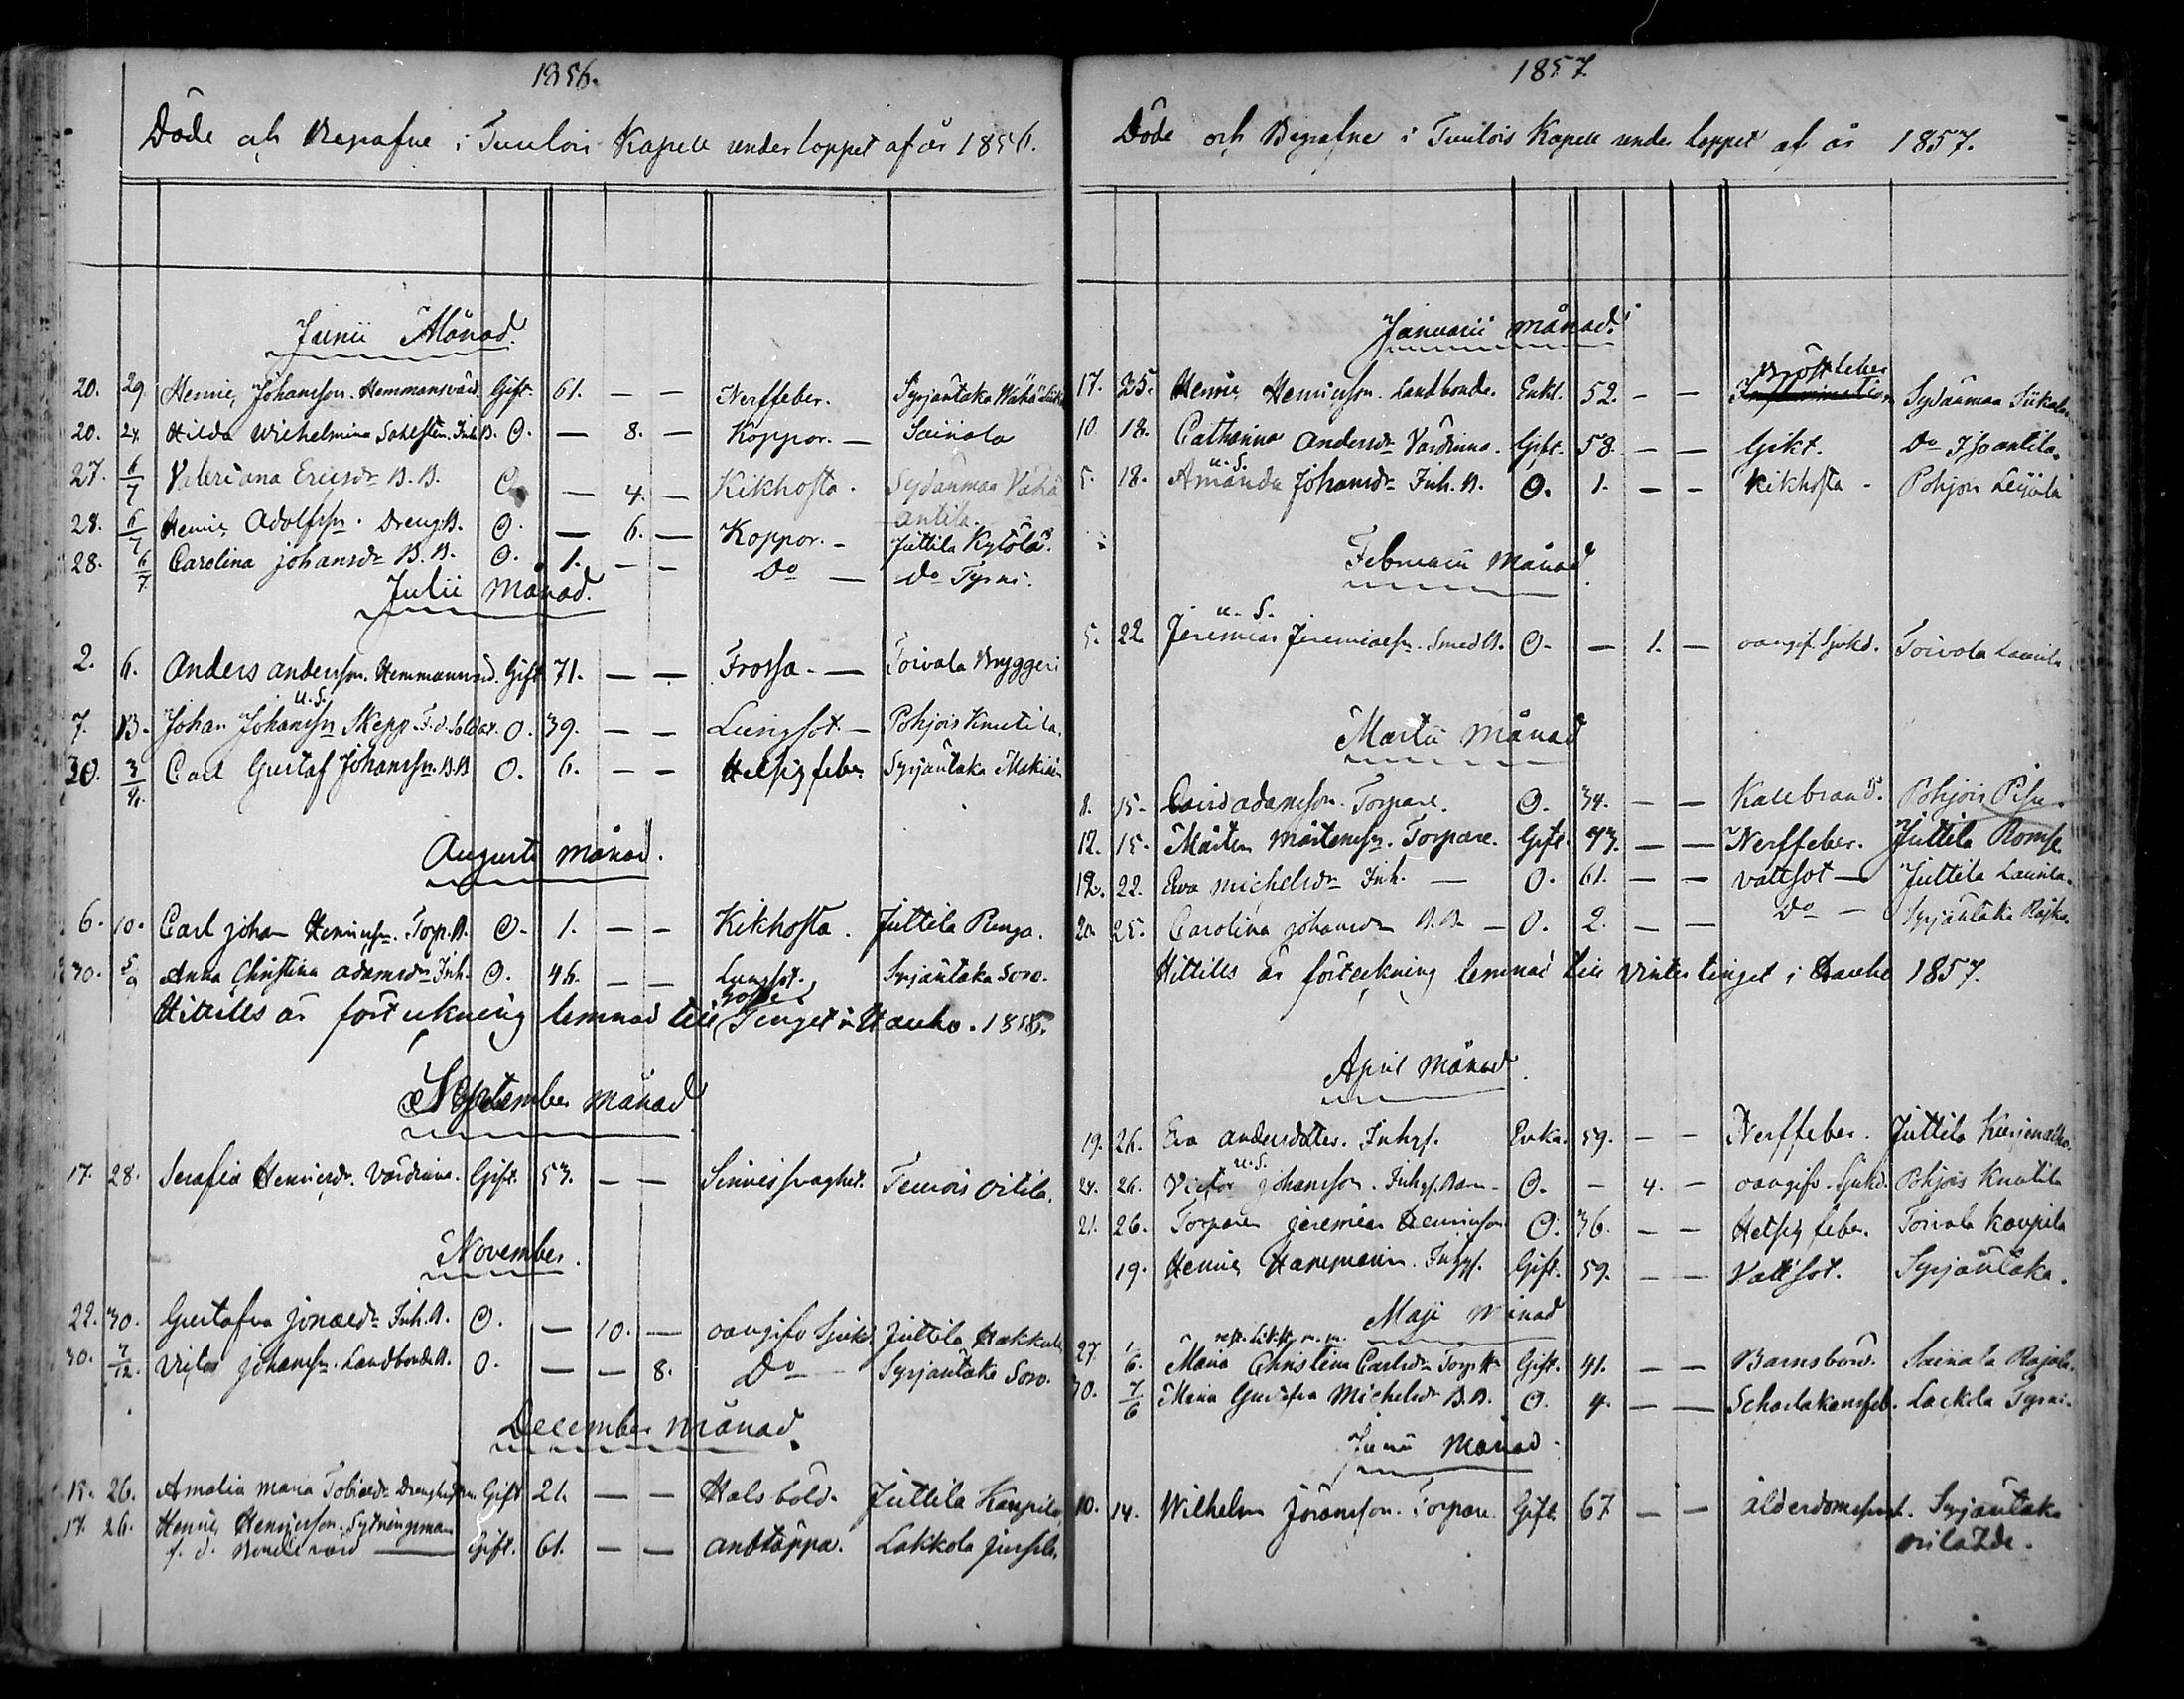 1856.
Döde och Begrafne i Tuulois Kapell under loppet af år 1856.
Junii Månad.
20. 29 Henric Johansson. Hemmansvärd. Gift. 61. — — Nerffeber. Syrjäntaka Wähä
20. 24. Hilda Wilhelmina Inh. B. O. — 8. — Koppor. — Sairiala
27. 6/7 Valeriana Ericsdr B.B. O — 4. — Kikhosta. Sydänmaa Vähä
antila.
28. 6/7 Henric Adolfsson. Dreng B. O. — 6. — Koppor. — Juttila Kytölä.
28. 6/7 Carolina Johansdr B.B. O. 1. — — Do — Do Tyrni.
Julii Månad.
2. 6. Anders Andersson. Hemmansvärd. Gift 71. — — Frossa. — Toivala Bryggeri
u.S.
7. 13. Johan Johansson Skepp F.d. Soldat. O. 39. — — Lungsot. — Pohjois Knutila.
30. 3/8. Carl Gustaf Johansson. B.B O. 6. — — Hetsig feber Syrjäntaka
Augusti månad.
6. 10. Carl Johan Henricsson. Torp. B. O. 1. — — Kikhosta. Juttila Penga.
30. 5/9 Anna Christina Adamsdr Inh. O. 46. — — Lungsot. Syrjäntaka Soro.
Hittills är förteckning lemnad till Tinget i Hauho. 1856.
September månad
17. 28. Serafia Henricsdr. Värdinna. Gift. 53. — — Sinnessvaghet. Teurois Oitila.
November.
22. 30. Gustafva Jonaedr Inh. B. O. — 10. — oangifv. Sjukd. Juttila Hakkula
30. 7/12. Victor Johansson. Landbonde B. O. — — 8. Do — Syrjäntaka Soro.
December månad.
15. 26. Amalia Maria Tobiaedr Gift 21. — — Halsböld. Juttila Kaupila,
17. 26. Henric Henricsson. Sytningsman
f.d. Bondevärd — Gift. 61. — — andtäppa. Lakkola
1857
Döde och Begrafne i Tuulois Kapell under loppet af år 1857.
Januarii månad.
Bröstfeber
17. 25. Henric Henricsson. Landbonde. Enkl. 52. — — Inflammation Sydänmaa Siikala
10. 18. Catharina Andersdr Värdinna. Gift. 58. — — Gikt. Do Isoantila.
u.S.
5. 18. Amanda Johansdr Inh. B. O. 1. — — Kikhosta — Pohjois Leijola
Februarii Månad.
u.S.
5. 22. Jeremias Jeremiaesson. Smed B. O. — 1. — oangif. Sjukd. Toivola Laurila
Martii Månad
8. 15. David Adamsson. Torpare. O. 34. — — Kallbrand. Pohjois
12. 15. Mårten Mårtensson. Torpare. Gift 43. — — Nerffeber. Juttila
12. 22. Eva Michelsdr Inh. — O. 61. — — Vattsot — Juttila Laurila.
20. 25. Carolina Johansdr B.B. — O. 2. — — Do — Syrjäntaka
Hittills är förteckning lemnad till Vintertinget i Hauho 1857.
April Månad.
19. 26. Eva Andersdotter. Inhys. Enka. 59. — — Nerffeber. Juttila
u.S.
24. 26. Victor Johansson. Inhys. Barn — O. — 4. — oangifv. Sjukd. Pohjois Knutila
21. 26. Torparen Jeremias Henricsson O. 36. — — Hetsig feber. Toivala Kaupila
19. Henric Hammarin. Inhys. Gift. 59. — — Vattsot. Syrjäntaka.
Maji Månad
27. 1/6. Maria Christina Carlsdr Torp. H. Gift. 41. — — Barnsbörd. Sairiala Rajala.
30. 7/6 Maria Gustafva Michelsdr B.B. O. 4. — — Scharlakansfeb. Lackola Tyrni.
Junii Månad.
10. 14. Wilhelm Göransson. Torpare. Gift. 67 — — ålderdomssvagh. Syrjäntaka